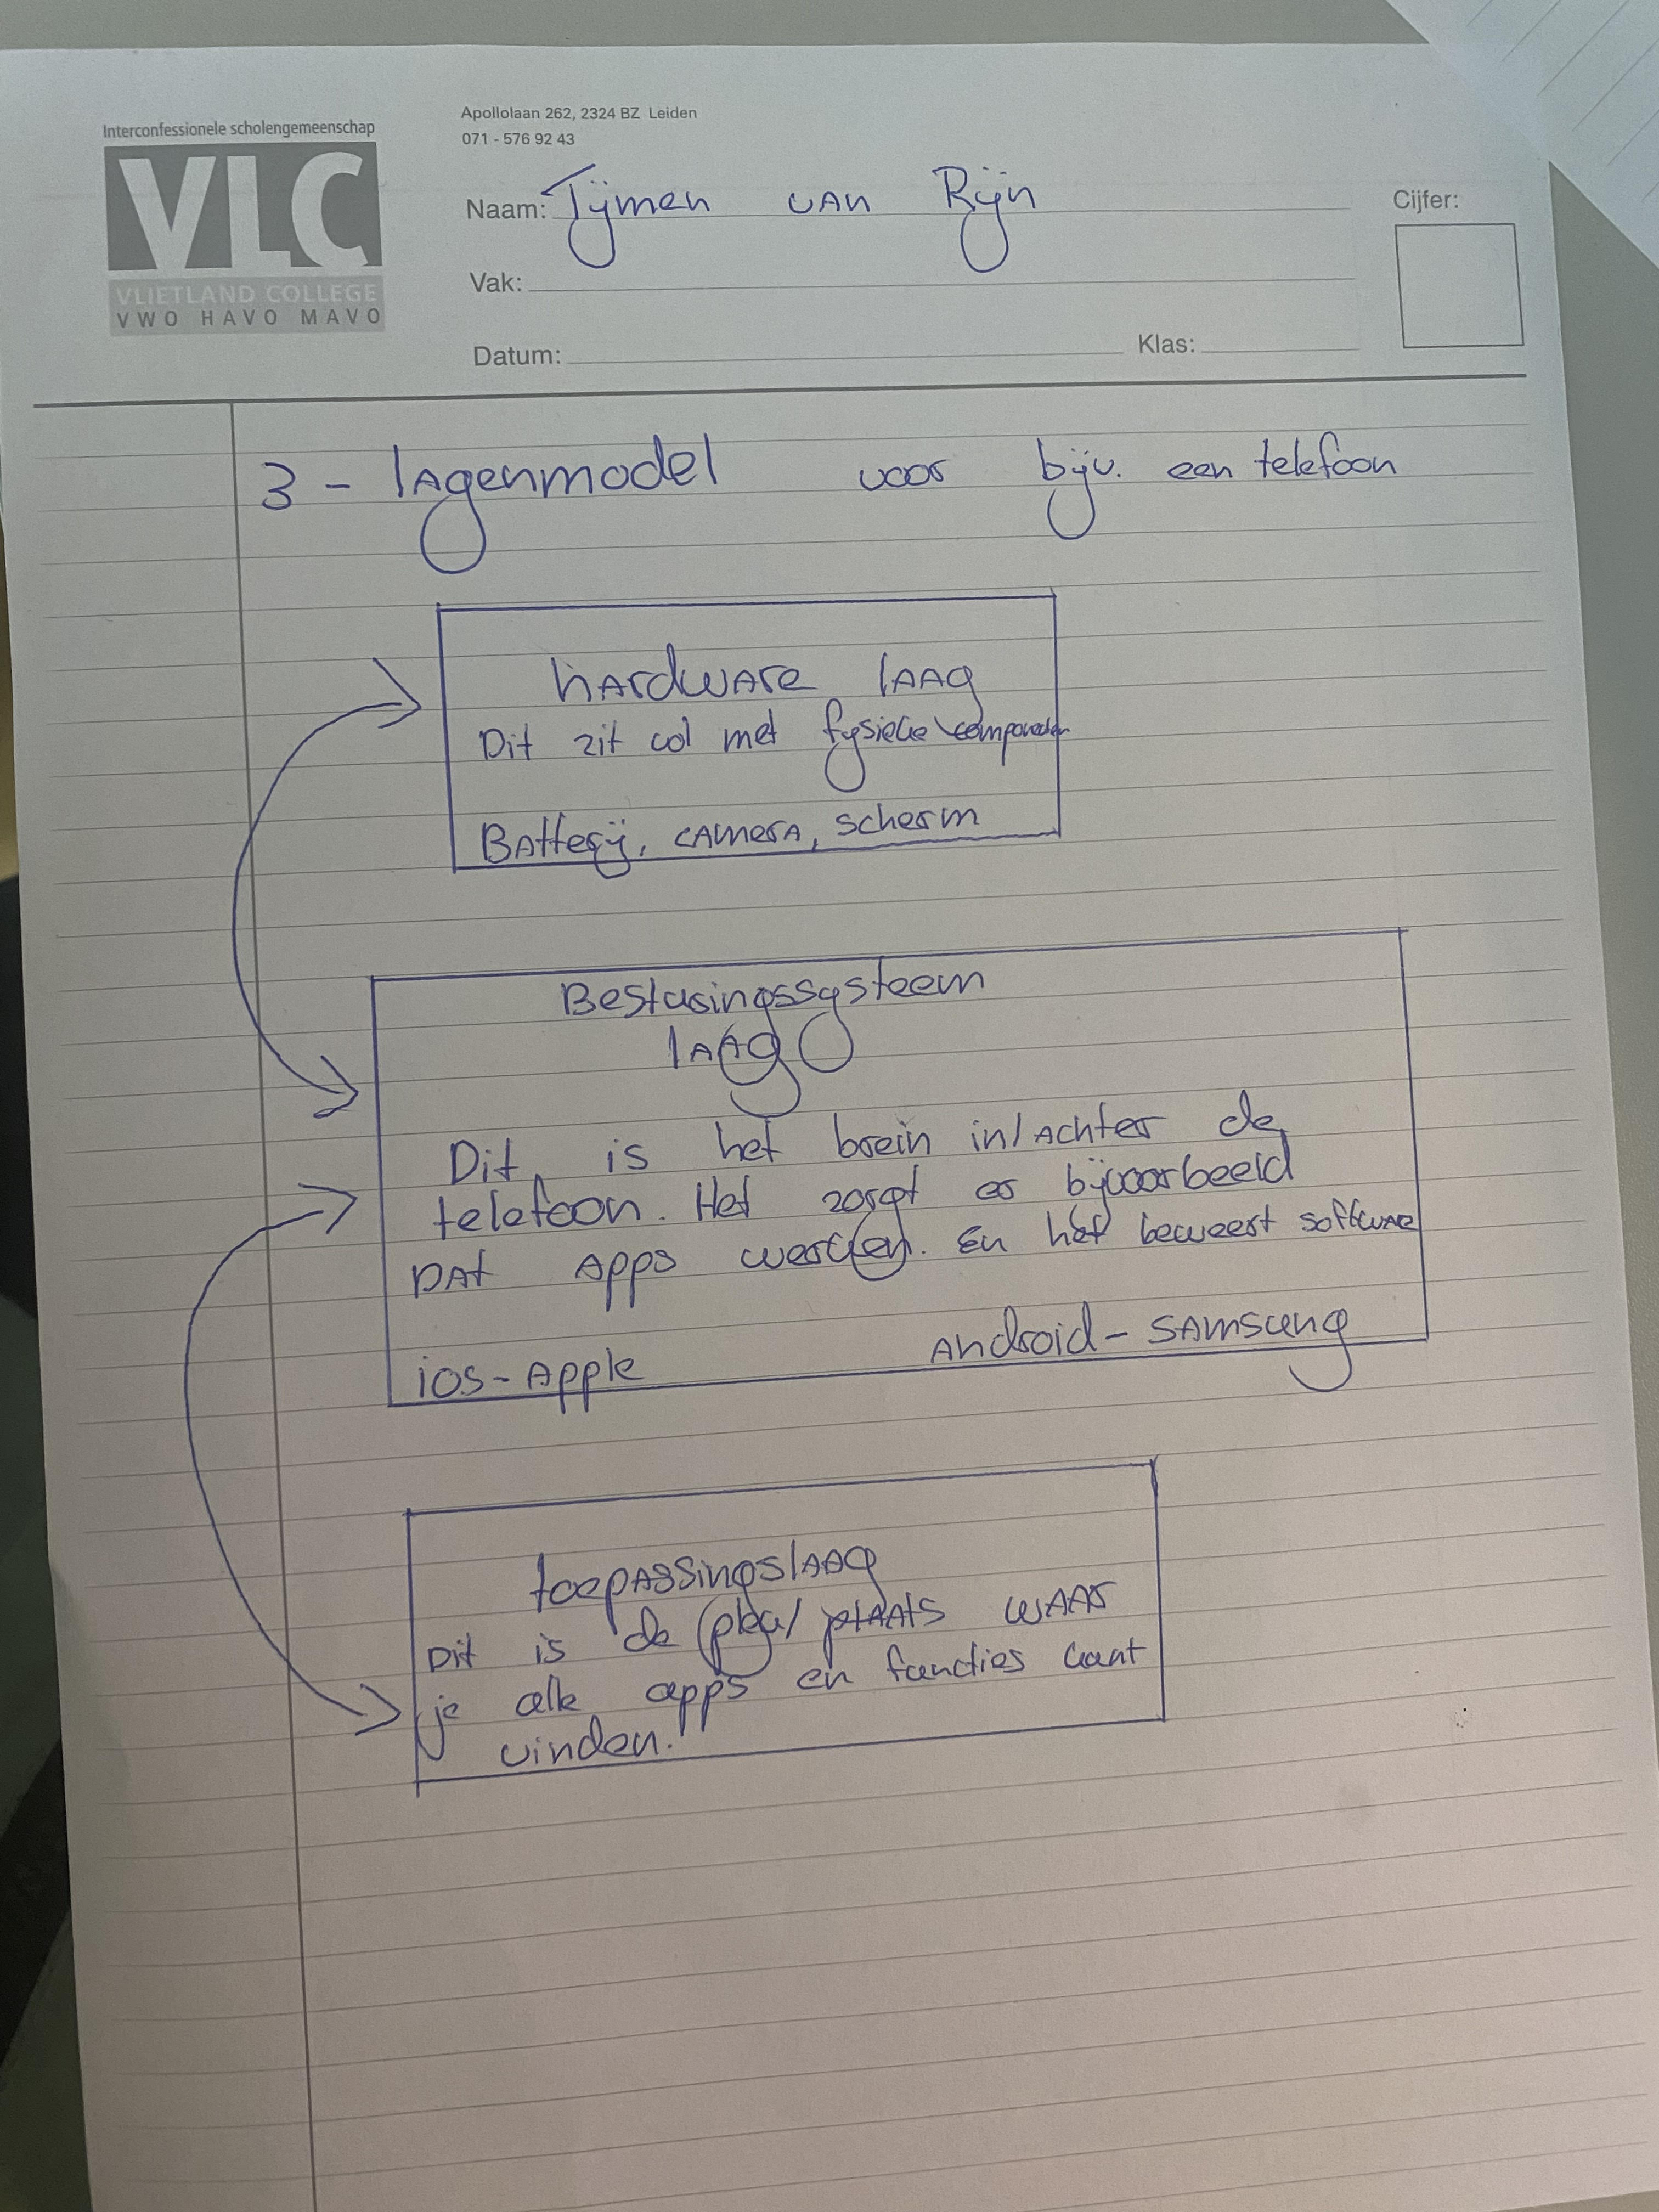 Interconfessionele scholengemeenschap
VLC
VLIETLAND COLLEGE
VWO HAVO MAVO
Apollolaan 262, 2324 BZ Leiden
071 - 576 92 43
Naam: Tijmen van Rijn
Vak:
Datum:
Klas:
Cijfer:
3 - lagenmodel voor bijv. een telefoon
hardware laag
Dit zit vol met fysieke componenten
Batterij, camera, scherm
Besturingssysteem
laag
Dit is het brein in/achter de
telefoon. Het zorgt er bijvoorbeeld
dat apps werken. En het beweert software
ios - Apple
Android - Samsung
toepassingslaag
Dit is de plek/plaats waar
je alle apps en functies kunt
vinden.